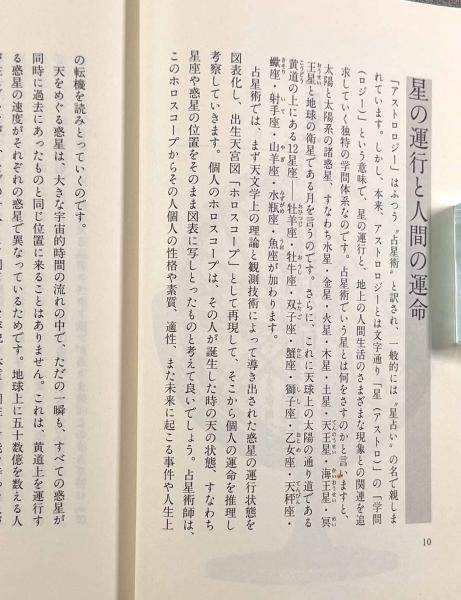 星の運行と人間の運命
「アストロロジー」はふつう〝占星術〟と訳され、一般的には〝星占い〟の名で親しま
れています。しかし、本来、アストロロジーとは文字通り「星（アストロ）」の「学問
（ロジー）」という意味で、星の運行と、地上の人間生活のさまざまな現象との関連を追
求していく独特の学問体系なのです。占星術でいう星とは何をさすのかと言いますと、
太陽と太陽系の諸惑星、すなわち水星・金星・火星・木星・土星・天王星・海王星・冥
王星と地球の衛星である月を言うのです。さらに、これに天球上の太陽の通り道である
黄道の上にある12星座——牡羊座・牡牛座・双子座・蟹座・獅子座・乙女座・天秤座・
蠍座・射手座・山羊座・水瓶座・魚座が加わります。
占星術では、まず天文学上の理論と観測技術によって導き出された惑星の運行状態を
図表化し、出生天宮図「ホロスコープ」として再現して、そこから個人の運命を推理し
考察していきます。個人のホロスコープは、その人が誕生した時の天の状態、すなわち
星座や惑星の位置をそのまま図表に写しとったものと考えて良いでしょう。占星術師は、
このホロスコープからその人個人の性格や素質、適性、また未来に起こる事件や人生上
の転機を読みとっていくのです。
天をめぐる惑星は、大きな宇宙的時間の流れの中で、ただの一瞬も、すべての惑星が
同時に過去にあったものと同じ位置に来ることはありません。これは、黄道上を運行す
る惑星の速度がそれぞれの惑星で異なっているためです。地球上に五十数億を数える人
10